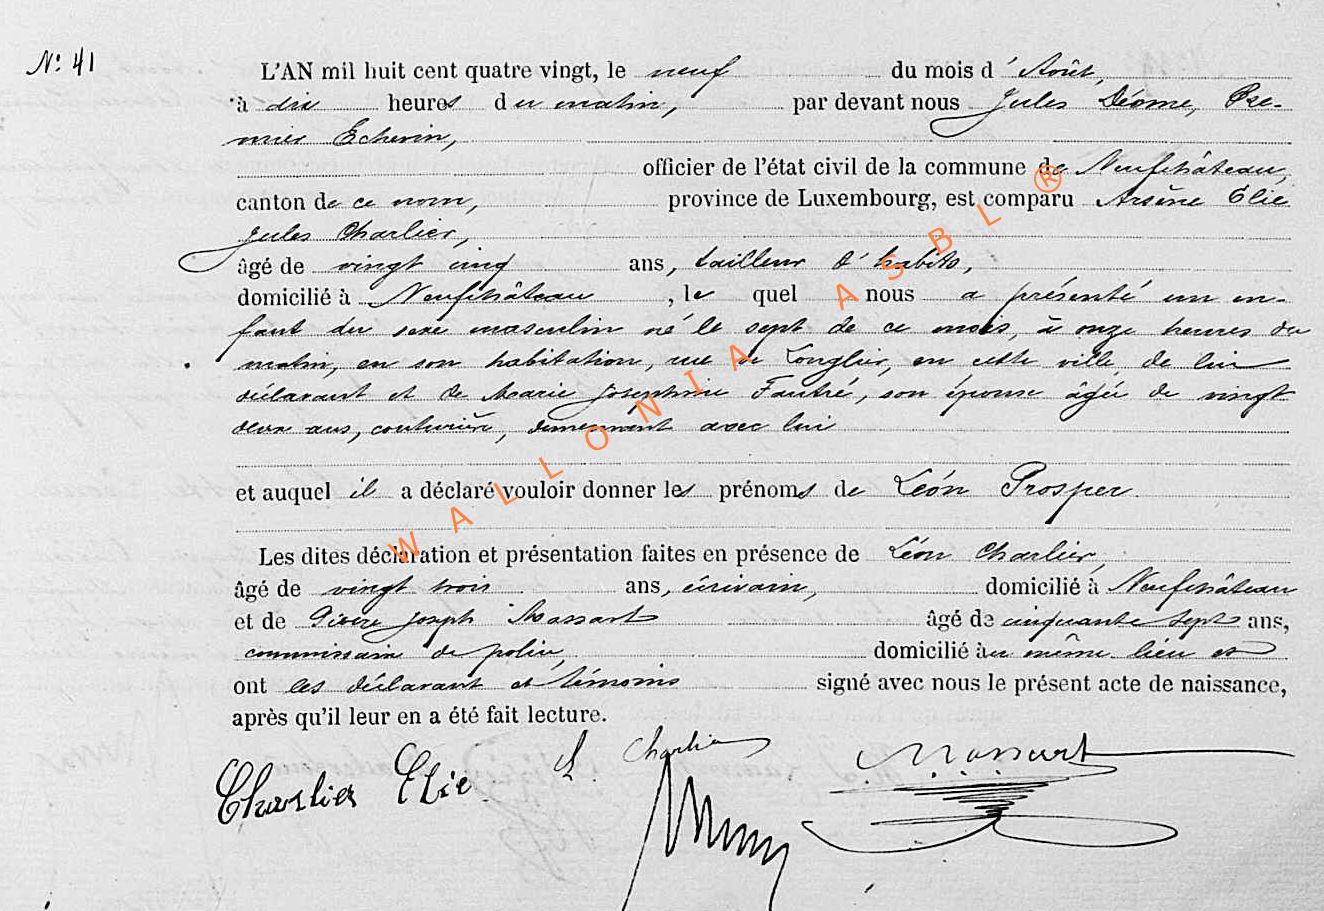 N° 41
L'AN mil huit cent quatre vingt, le neuf du mois d'Août,
à dix heures du matin, par devant nous Jules Déome, Pre-
mier Echevin,
officier de l'état civil de la commune de Neufchâteau,
canton de ce nom, province de Luxembourg, est comparu Arsène Elie
Jules Charlier,
âgé de vingt cinq ans, tailleur d'habits,
domicilié à Neufchâteau, le quel nous a présenté un en-
fant du sexe masculin né le sept de ce mois, à onze heures du
matin, en son habitation, rue de Longlier, en cette ville de lui
déclarant et de Marie Josephine Fautré, son épouse âgée de vingt
deux ans, couturière, demeurant avec lui
et auquel il a déclaré vouloir donner les prénoms de Léon Prosper
Les dites déclaration et présentation faites en présence de Léon Charlier,
âgé de vingt trois ans, écrivain, domicilié à Neufchâteau
et de Pierre Joseph Massart âgé de cinquante sept ans,
commissaire de police, domicilié au même lieu et
ont les déclarant et témoins signé avec nous le présent acte de naissance,
après qu'il leur en a été fait lecture.
Charlier Elie L Charlier Massart
WALLONIA ASBL ®